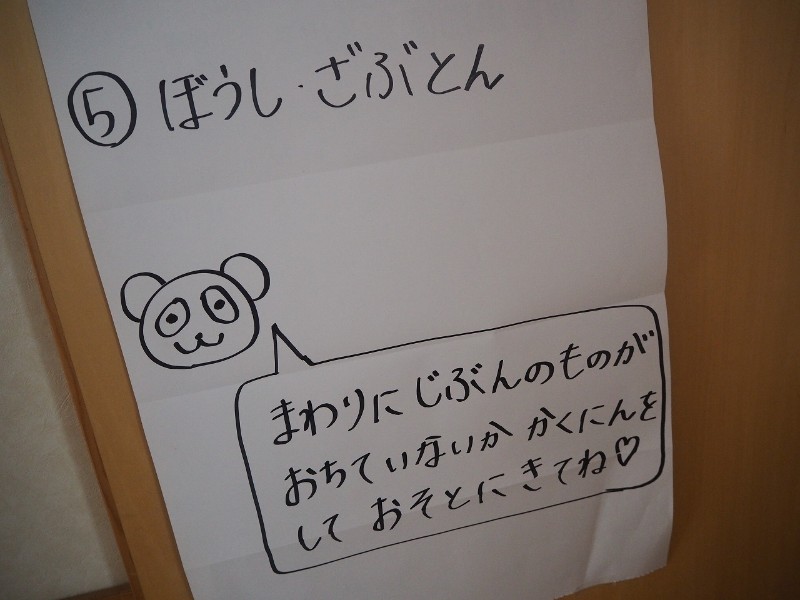 ⑤ ぼうし・ざぶとん
まわりに じぶんのものが
おちていないか かくにんを
して おそとに きてね♡